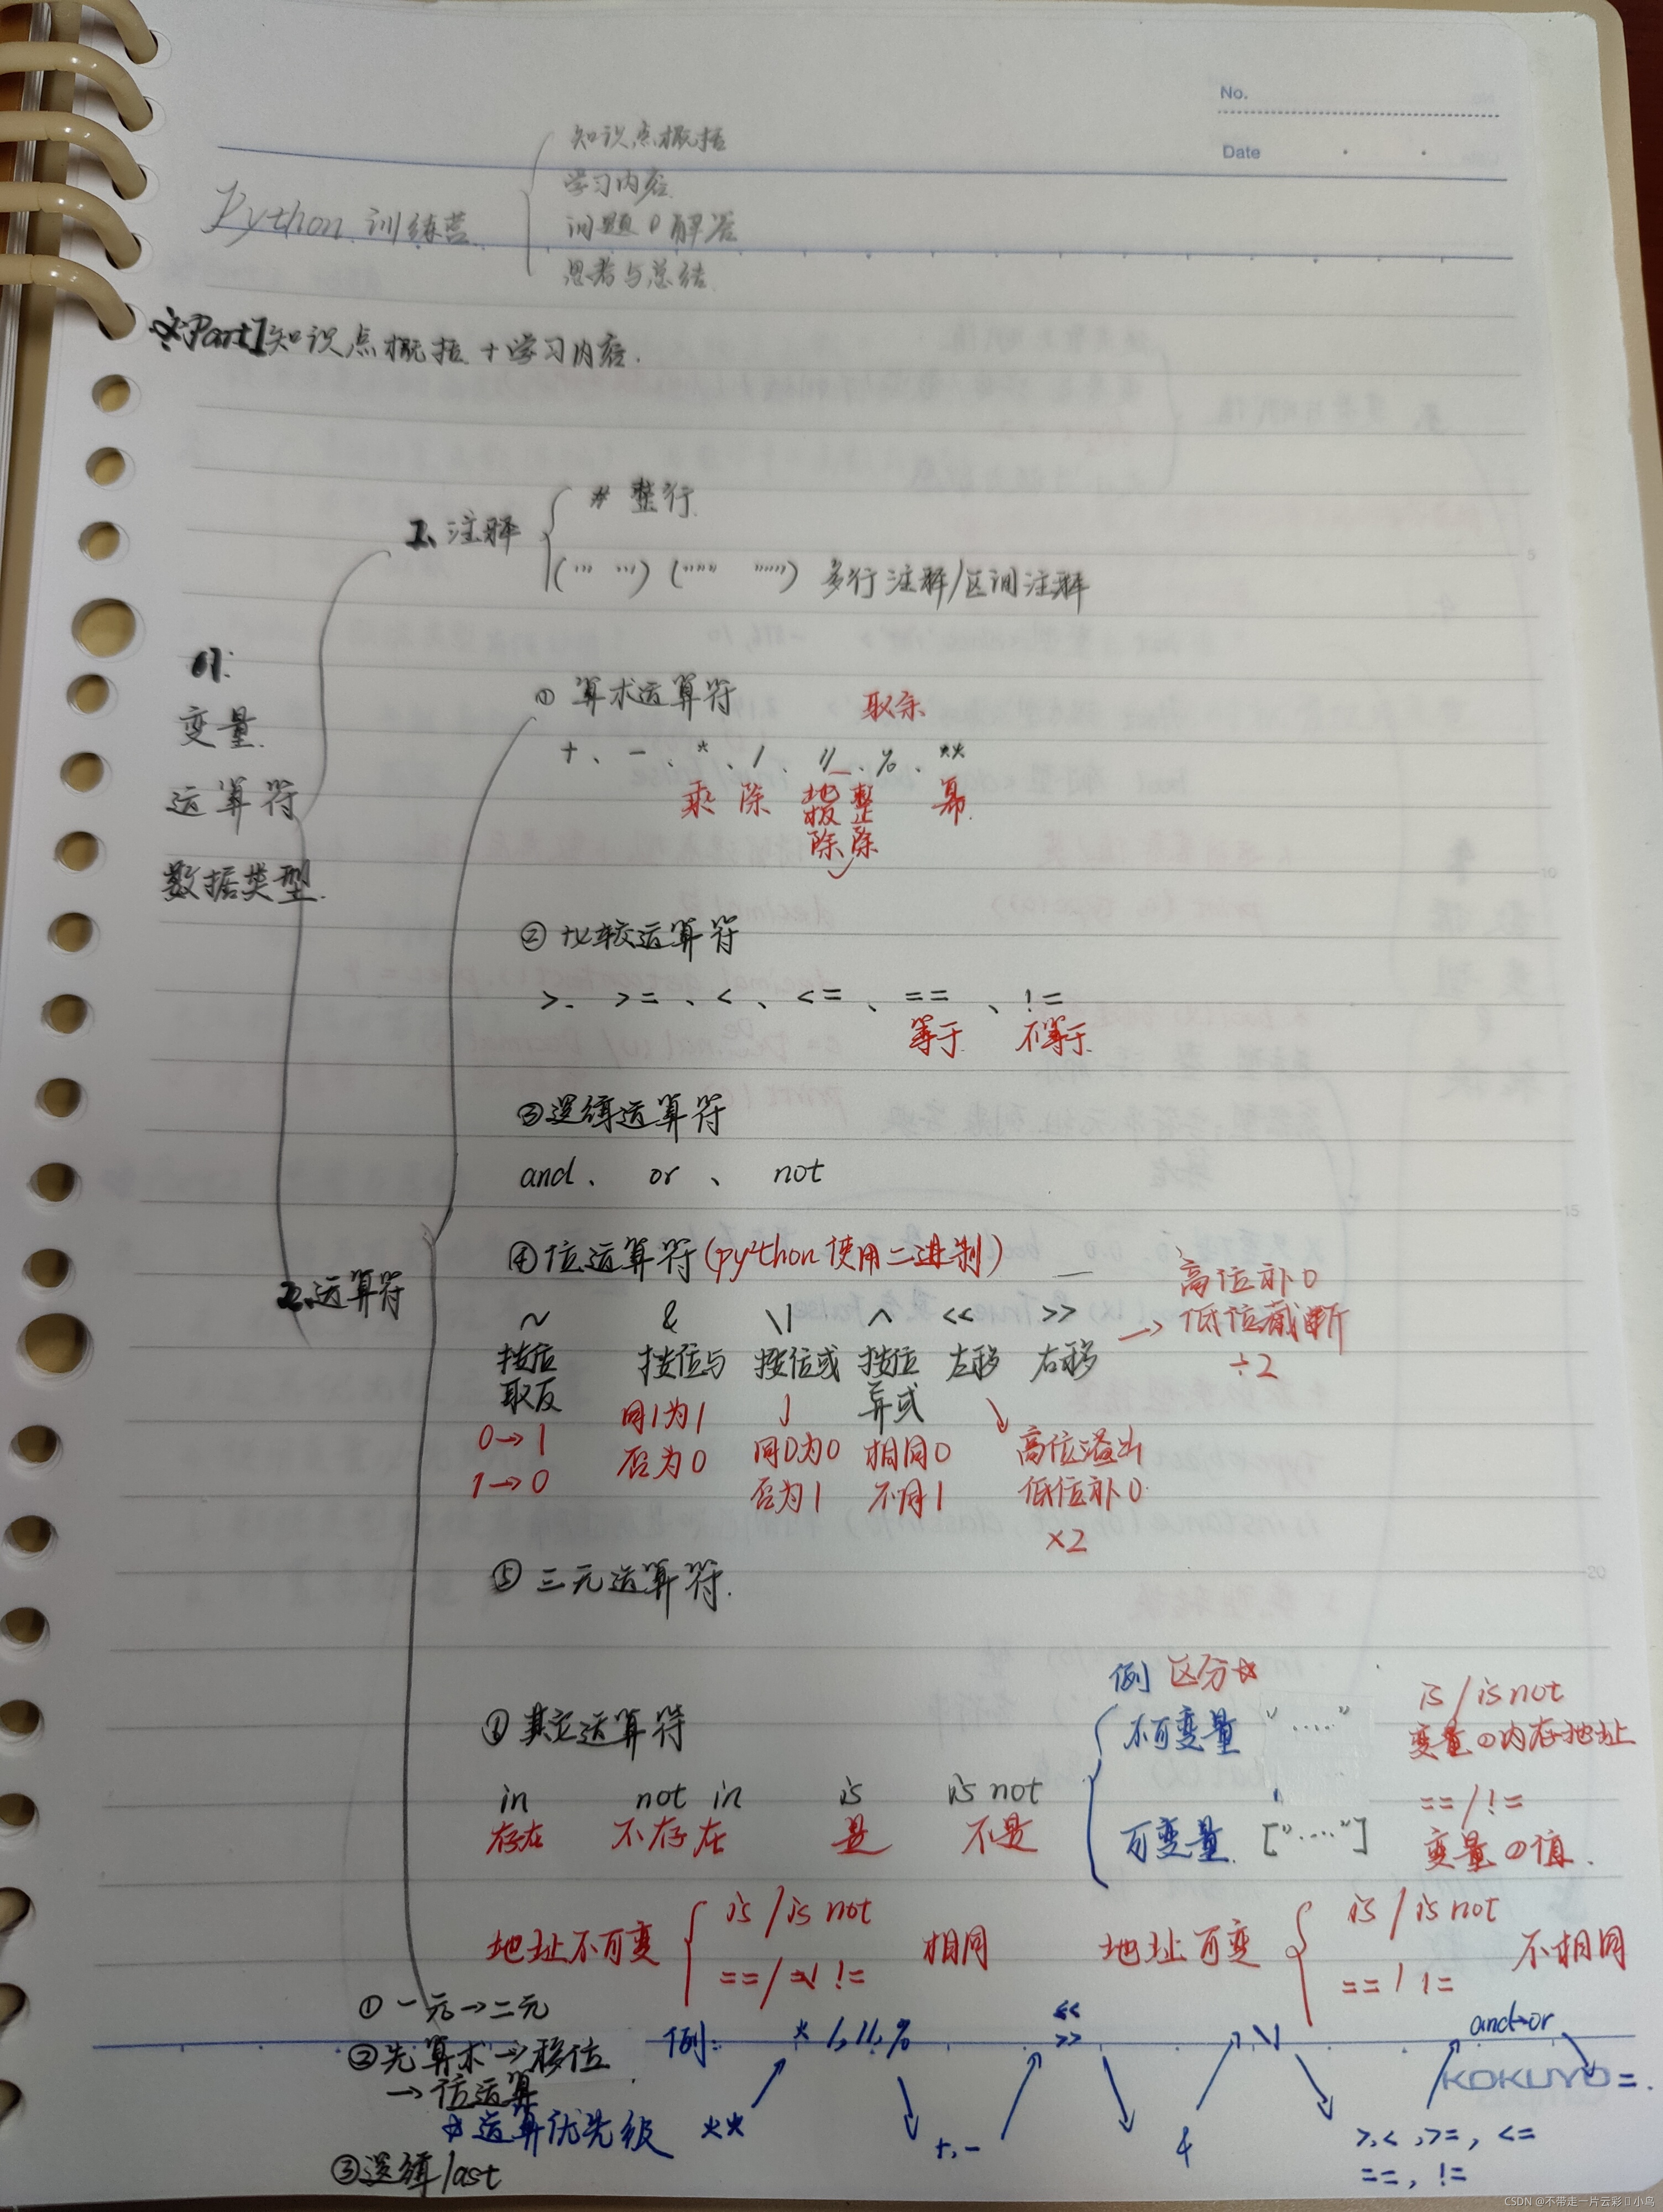 No.
Date
知识点概括
学习内容
Python 训练营
问题の解答
思考与总结
☆Part1知识点概括+学习内容.
1、注释
# 整行
(''' ''') (""" """) 多行注释/区间注释
01:
变量
运算符
数据类型.
① 算术运算符
取余
+、-、*、/、//、%、**
乘 除 地板除 整除 幂
② 比较运算符
>、 >=、<、<=、==、!=
等于 不等于
③逻辑运算符
and、 or、 not
2、运算符
④位运算符(python使用二进制)
~ & \| ^ << >>
按位取反 按位与 按位或 按位异或 左移 右移
→ 高位补0
低位截断
÷2
0→1
1→0
同1为1
否为0
同0为0
否为1
相同0
不同1
高位溢出
低位补0
×2
⑤三元运算符.
例 区分☆
不可变量 "....."
可变量. ["....."]
is/is not
变量の内存地址
==/!=
变量の值.
④其它运算符
in not in is is not
存在 不存在 是 不是
地址不可变 is/is not
==/ != 相同
地址可变 is/is not
==/ != 不相同
①一元→二元
②先算术→移位
→位运算
☆运算优先级
③逻辑last
例: ** * /,//,% +,- << >> & \| >,<,>=,<= ==,!= and→or =.
KOKUYO
CSDN @不带走一片云彩 小鸟